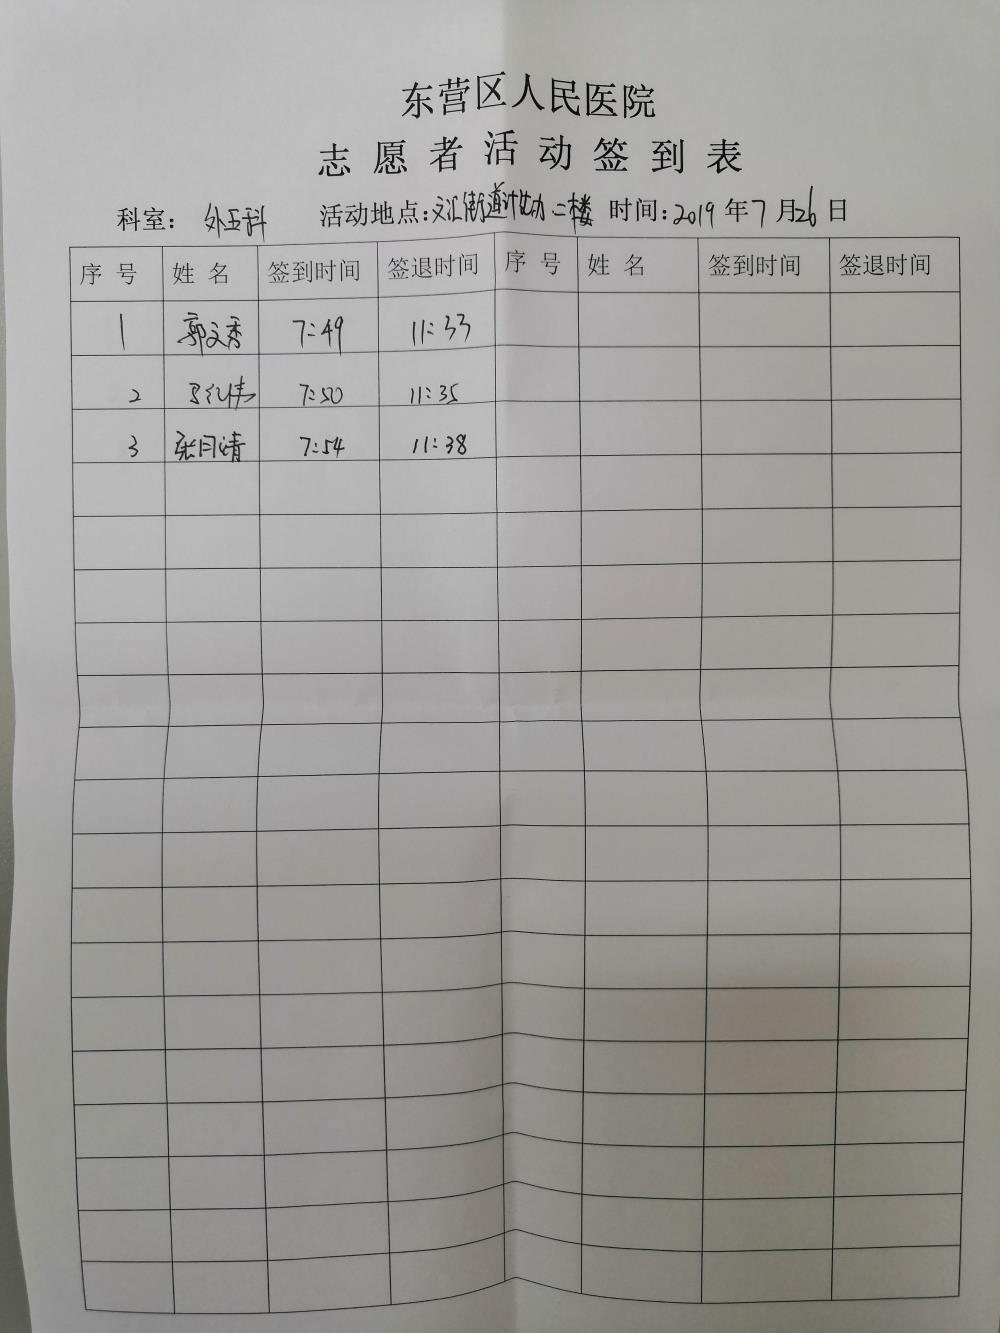 东营区人民医院
志愿者活动签到表
科室：外五科 活动地点：文汇街道计生办二楼 时间：2019年7月26日
序号 姓名 签到时间 签退时间 序号 姓名 签到时间 签退时间
1 郭文秀 7:49 11:33
2 7:50 11:35
3 张月婧 7:54 11:38